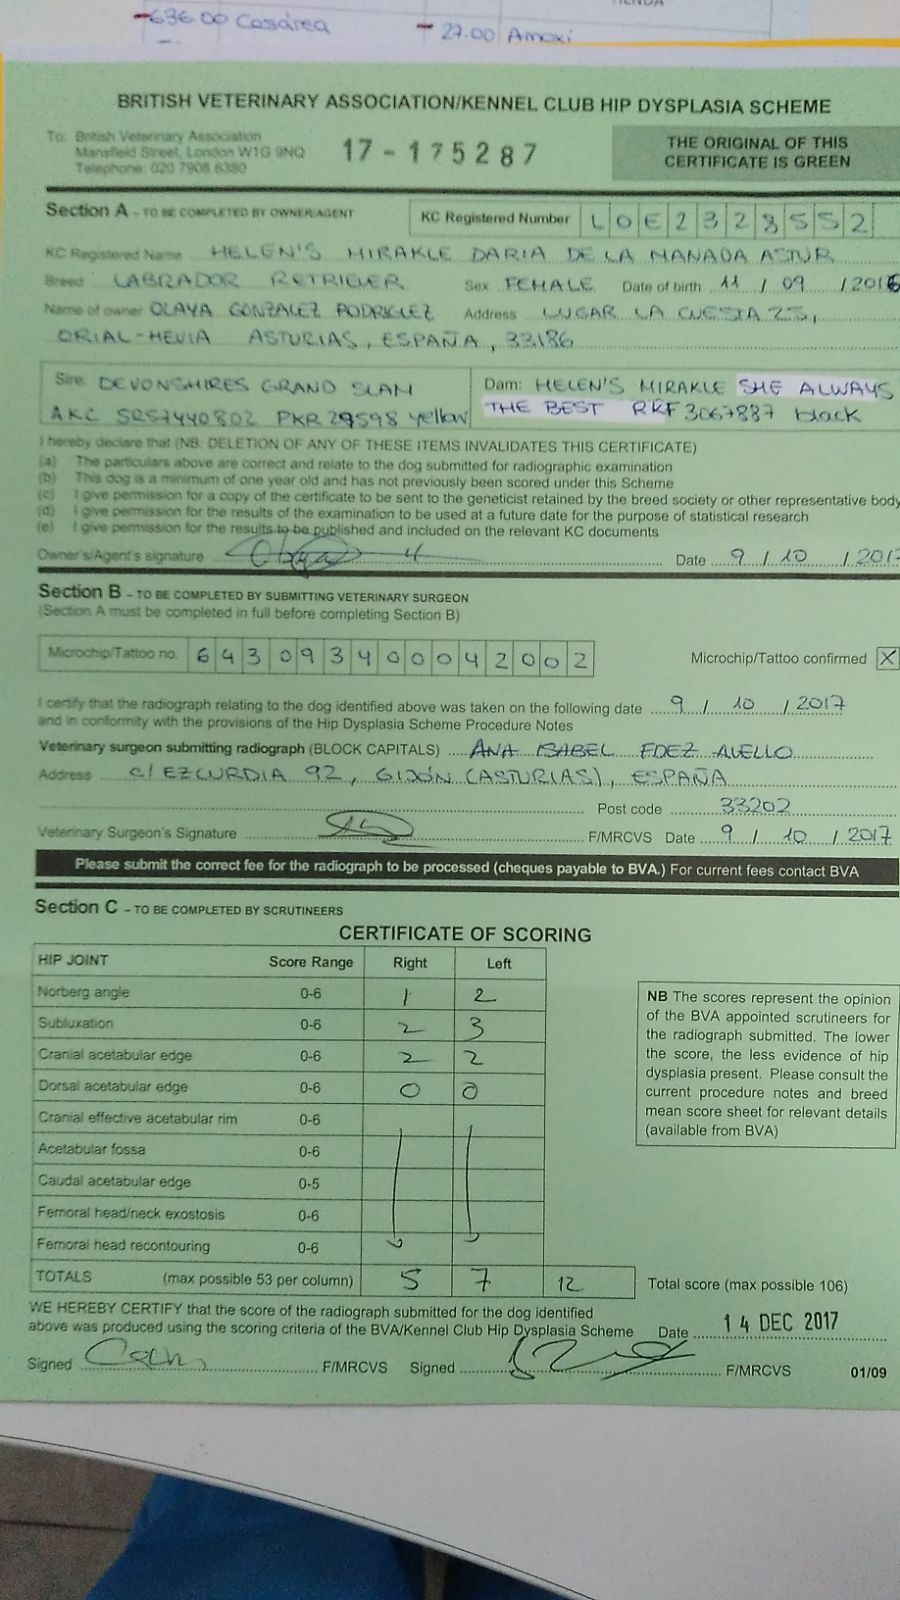 -636.00 Casárea
- 27.00 Amoxi
BRITISH VETERINARY ASSOCIATION/KENNEL CLUB HIP DYSPLASIA SCHEME
To: British Veterinary Association
Mansfield Street, London W1G 9NQ
Telephone: 020 7908 6380
17-175287
THE ORIGINAL OF THIS
CERTIFICATE IS GREEN
Section A - TO BE COMPLETED BY OWNER/AGENT
KC Registered Number LOE2328552
KC Registered Name HELEN'S MIRAKLE DARIA DE LA MANADA ASTUR
Breed LABRADOR RETRIEVER Sex FEMALE Date of birth 11 / 09 / 2016
Name of owner OLAYA GONZALEZ RODRIGUEZ Address LUGAR LA CUESTA 25,
ORIAL-HEVIA ASTURIAS, ESPAÑA, 33186
Sire: DEVONSHIRES GRAND SLAM
AKC SR57440802 PKR.29598 yellow
Dam: HELEN'S MIRAKLE SHE ALWAYS
THE BEST RKF 3067887 black
I hereby declare that (NB. DELETION OF ANY OF THESE ITEMS INVALIDATES THIS CERTIFICATE)
(a) The particulars above are correct and relate to the dog submitted for radiographic examination
(b) This dog is a minimum of one year old and has not previously been scored under this Scheme
(c) I give permission for a copy of the certificate to be sent to the geneticist retained by the breed society or other representative body
(d) I give permission for the results of the examination to be used at a future date for the purpose of statistical research
(e) I give permission for the results to be published and included on the relevant KC documents
Owner's/Agent's signature Date 9 / 10 / 2017
Section B - TO BE COMPLETED BY SUBMITTING VETERINARY SURGEON
(Section A must be completed in full before completing Section B)
Microchip/Tattoo no. 643093400042002
Microchip/Tattoo confirmed X
I certify that the radiograph relating to the dog identified above was taken on the following date 9 / 10 / 2017
and in conformity with the provisions of the Hip Dysplasia Scheme Procedure Notes
Veterinary surgeon submitting radiograph (BLOCK CAPITALS) ANA ISABEL FDEZ AVELLO
Address C/ EZCURDIA 92, GIJÓN (ASTURIAS), ESPAÑA
Post code 33202
Veterinary Surgeon's Signature F/MRCVS Date 9 / 10 / 2017
Please submit the correct fee for the radiograph to be processed (cheques payable to BVA.) For current fees contact BVA
Section C - TO BE COMPLETED BY SCRUTINEERS
CERTIFICATE OF SCORING
HIP JOINT Score Range Right Left
Norberg angle 0-6 1 2
Subluxation 0-6 2 3
Cranial acetabular edge 0-6 2 2
Dorsal acetabular edge 0-6 0 0
Cranial effective acetabular rim 0-6
Acetabular fossa 0-6
Caudal acetabular edge 0-5
Femoral head/neck exostosis 0-6
Femoral head recontouring 0-6
TOTALS (max possible 53 per column) 5 7 12 Total score (max possible 106)
NB The scores represent the opinion
of the BVA appointed scrutineers for
the radiograph submitted. The lower
the score, the less evidence of hip
dysplasia present. Please consult the
current procedure notes and breed
mean score sheet for relevant details
(available from BVA)
WE HEREBY CERTIFY that the score of the radiograph submitted for the dog identified
above was produced using the scoring criteria of the BVA/Kennel Club Hip Dysplasia Scheme Date 14 DEC 2017
Signed F/MRCVS Signed F/MRCVS 01/09